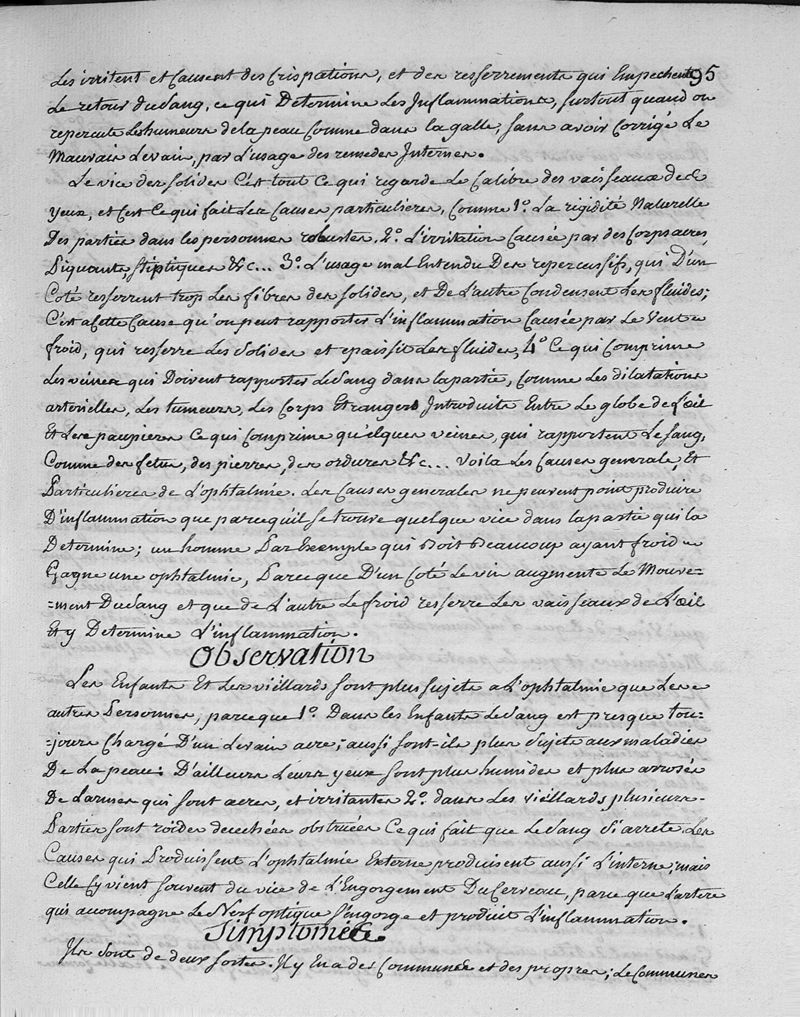 95
Les irritent et Causent des Crispations, et des resserrements qui Empechent
Le retour du Sang, ce qui Determine Les Inflammations, surtout quand on
repercute Les humeurs de la peau Comme dans la galle, sans avoir Corrigé Le
Mauvais Levain, par L'usage des remedes Internes.
Le vice des solides C'est tout Ce qui regarde Le Calibre des vaisseaux des
yeux, et C'est Ce qui fait Les Causes particulieres, Comme 1º. La rigidité Naturelle
Des parties dans les personnes robustes. 2º. L'irritation Causée par des Corps acres,
Piquants stiptiques &c... 3º. L'usage mal Entendu Des repercussifs, qui D'un
Coté resserrent trop Les fibres des solides, et De L'autre Condensent Les fluides;
C'est a Cette Cause qu'on peut rapporter L'inflammation Causée par Le Vent
froid, qui resserre Les Solides et epaissit Les fluides, 4º Ce qui Comprime
Les veines qui Doivent rapporter Le Sang dans la partie, Comme Les dilatations
arterielles, Les tumeurs, Les Corps Etrangers Introduits Entre Le globe de L'oeil
Et Les paupieres Ce qui Comprime quelques veines, qui rapportent Le sang,
Comme des fetus, des pierres, des ordures &c... Voila Les Causes generales, Et
Particulieres de L'ophtalmie. Les Causes generales ne peuvent point produire
D'inflammation que parcequ'il se trouve quelque vice dans la partie qui la
Determine; un homme Par Exemple qui Boit Beaucoup ayant froid
Gagne une ophtalmie, Parceque D'un Coté Le vin augmente Le Mouve=
=ment Du Sang et que de L'autre Le froid resserre Les vaisseaux de L'oeil
Et y Determine L'inflammation.
Observation
Les Enfants Et Les vieillards sont plus sujets a L'ophtalmie que Les
autres Personnes, parceque 1º. Dans les Enfants Le Sang est presque tou=
=jours Chargé D'un Levain acre; aussi sont-ils plus sujets aux maladies
De La peau: D'ailleurs Leurs yeux sont plus humides et plus arrosés
De Larmes qui sont acres, et irritantes 2º. dans Les vieillards plusieurs
Parties sont roides dessechées obstruées Ce qui fait que Le Sang S'i arrete. Les
Causes qui Produisent L'ophtalmie Externe produisent aussi L'interne; mais
Celle Cy vient souvent du vice de L'Engorgement Du Cerveau, parce que L'artere
qui acompagne Le Nerf optique S'engorge et produit L'inflammation.
Simptomes
Ils sont de deux sortes. Il y En a des Communs et des propres; Les Communs